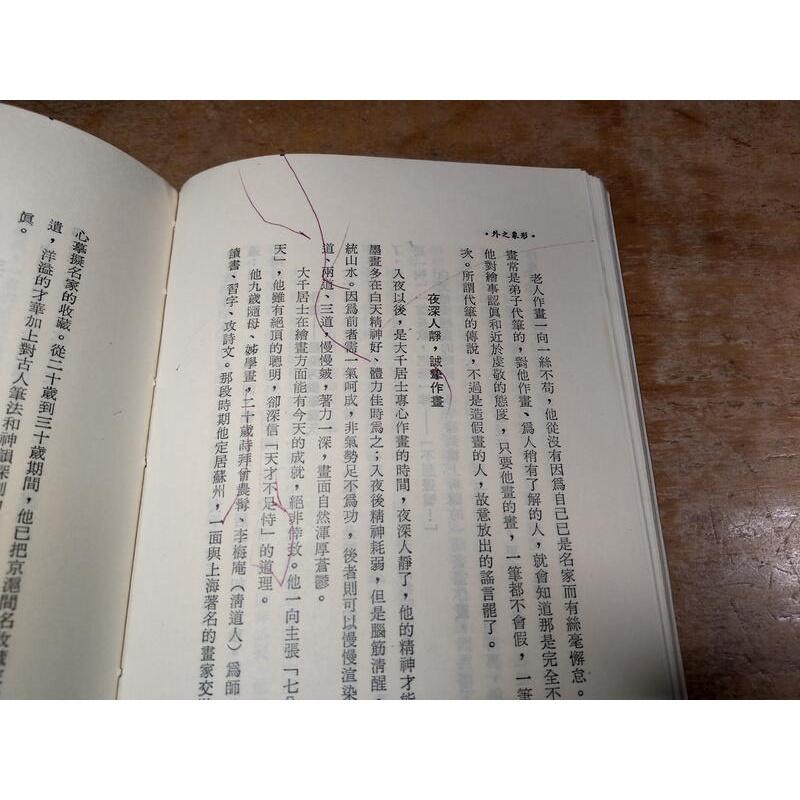 •外之象形•
老人作畫一向一絲不苟，他從沒有因爲自己已是名家而有絲毫懈怠。
畫常是弟子代筆的，對他作畫、爲人稍有了解的人，就會知道那是完全不
他對繪事認眞和近於虔敬的態度，只要他畫的畫，一筆都不會假，一筆
次。所謂代筆的傳說，不過是造假畫的人，故意放出的謠言罷了。
夜深人靜，誠摯作畫
入夜以後，是大千居士專心作畫的時間，夜深人靜了，他的精神才能
墨畫多在白天精神好、體力佳時爲之；入夜後精神耗弱，但是腦筋淸醒，
統山水。因爲前者需一氣呵成，非氣勢足不爲功，後者則可以慢慢渲染
道、兩道、三道，慢慢皴，著力一深，畫面自然渾厚蒼鬱。
大千居士在繪畫方面能有今天的成就，絕非倖致。他一向主張「七分
天」，他雖有絕頂的聰明，卻深信「天才不足恃」的道理。
他九歲隨母、姊學畫，二十歲時拜曾農髯、李梅庵（淸道人）爲師
讀書、習字、攻詩文。那段時期他定居蘇州，一面與上海著名的畫家交
心摹擬名家的收藏。從二十歲到三十歲期間，他已把京滬間名收藏
遺，洋溢的才華加上對古人筆法和神韻深刻
眞。